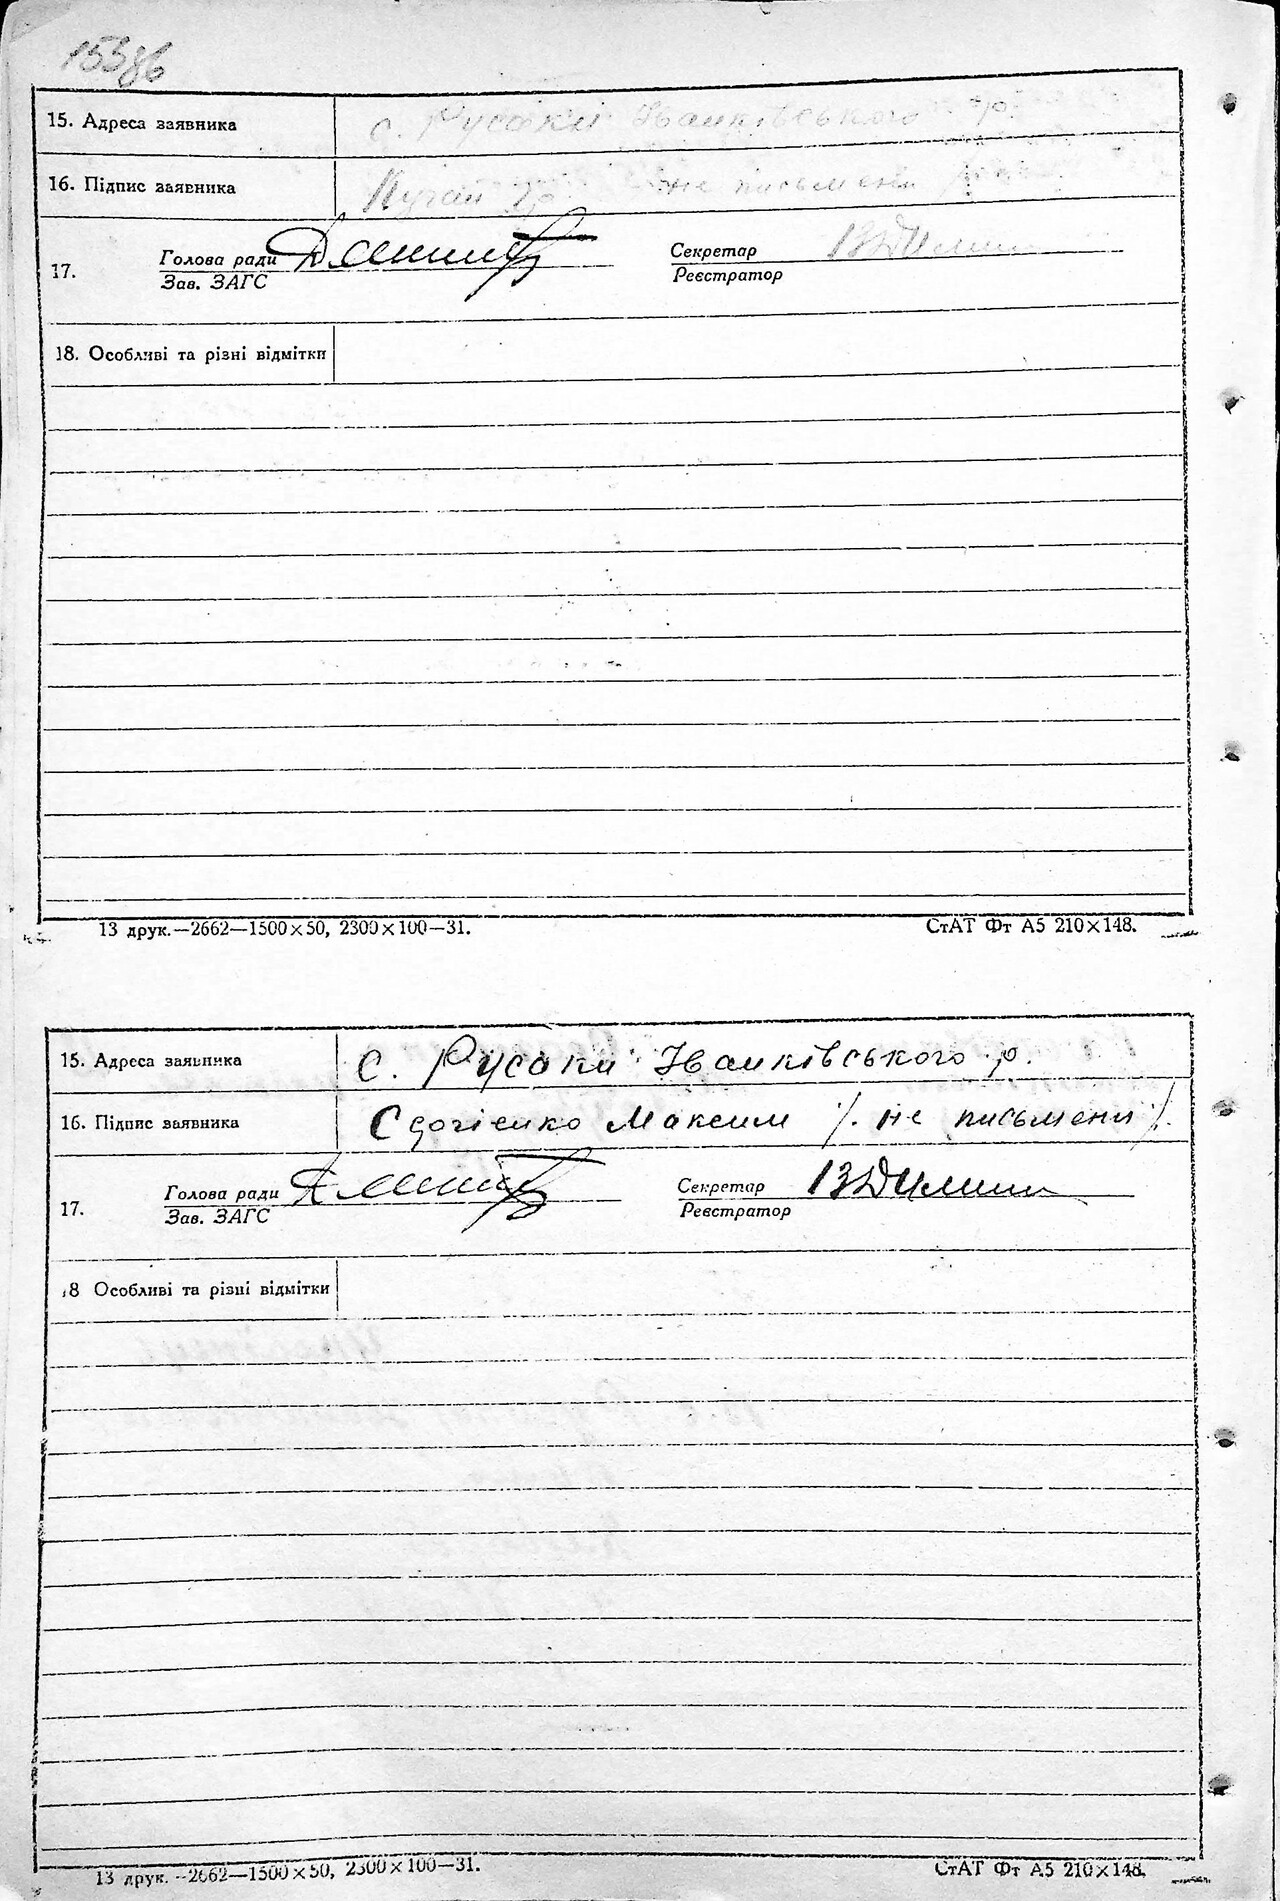 153зв
15. Адреса заявника с. Русаки Іванківського р.
16. Підпис заявника не письмени
17. Голова ради Секретар
Зав. ЗАГС Реєстратор
18. Особливі та різні відмітки
13 друк.—2662—1500×50, 2300×100—31. СтАТ Фт А5 210×148.
15. Адреса заявника с. Русаки Іванківського р.
16. Підпис заявника Максим /. не письмени /.
17. Голова ради Секретар
Зав. ЗАГС Реєстратор
18 Особливі та різні відмітки
13 друк.—2662—1500×50, 2300×100—31. СтАТ Фт А5 210×148.